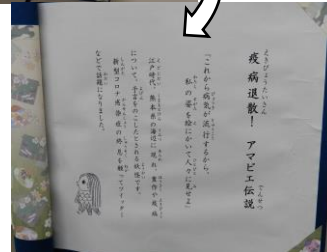 疫病退散！ アマビエ伝説
えきびょうたいさん でんせつ
「これから病気が流行するから、
私の姿を絵にかいて人々に見せよ」
江戸時代、熊本県の海辺に現れ、豊作や疫病
について、予言をのこしたとされる妖怪です。
新型コロナ感染症の終息を願ってツイッター
などで話題になりました。